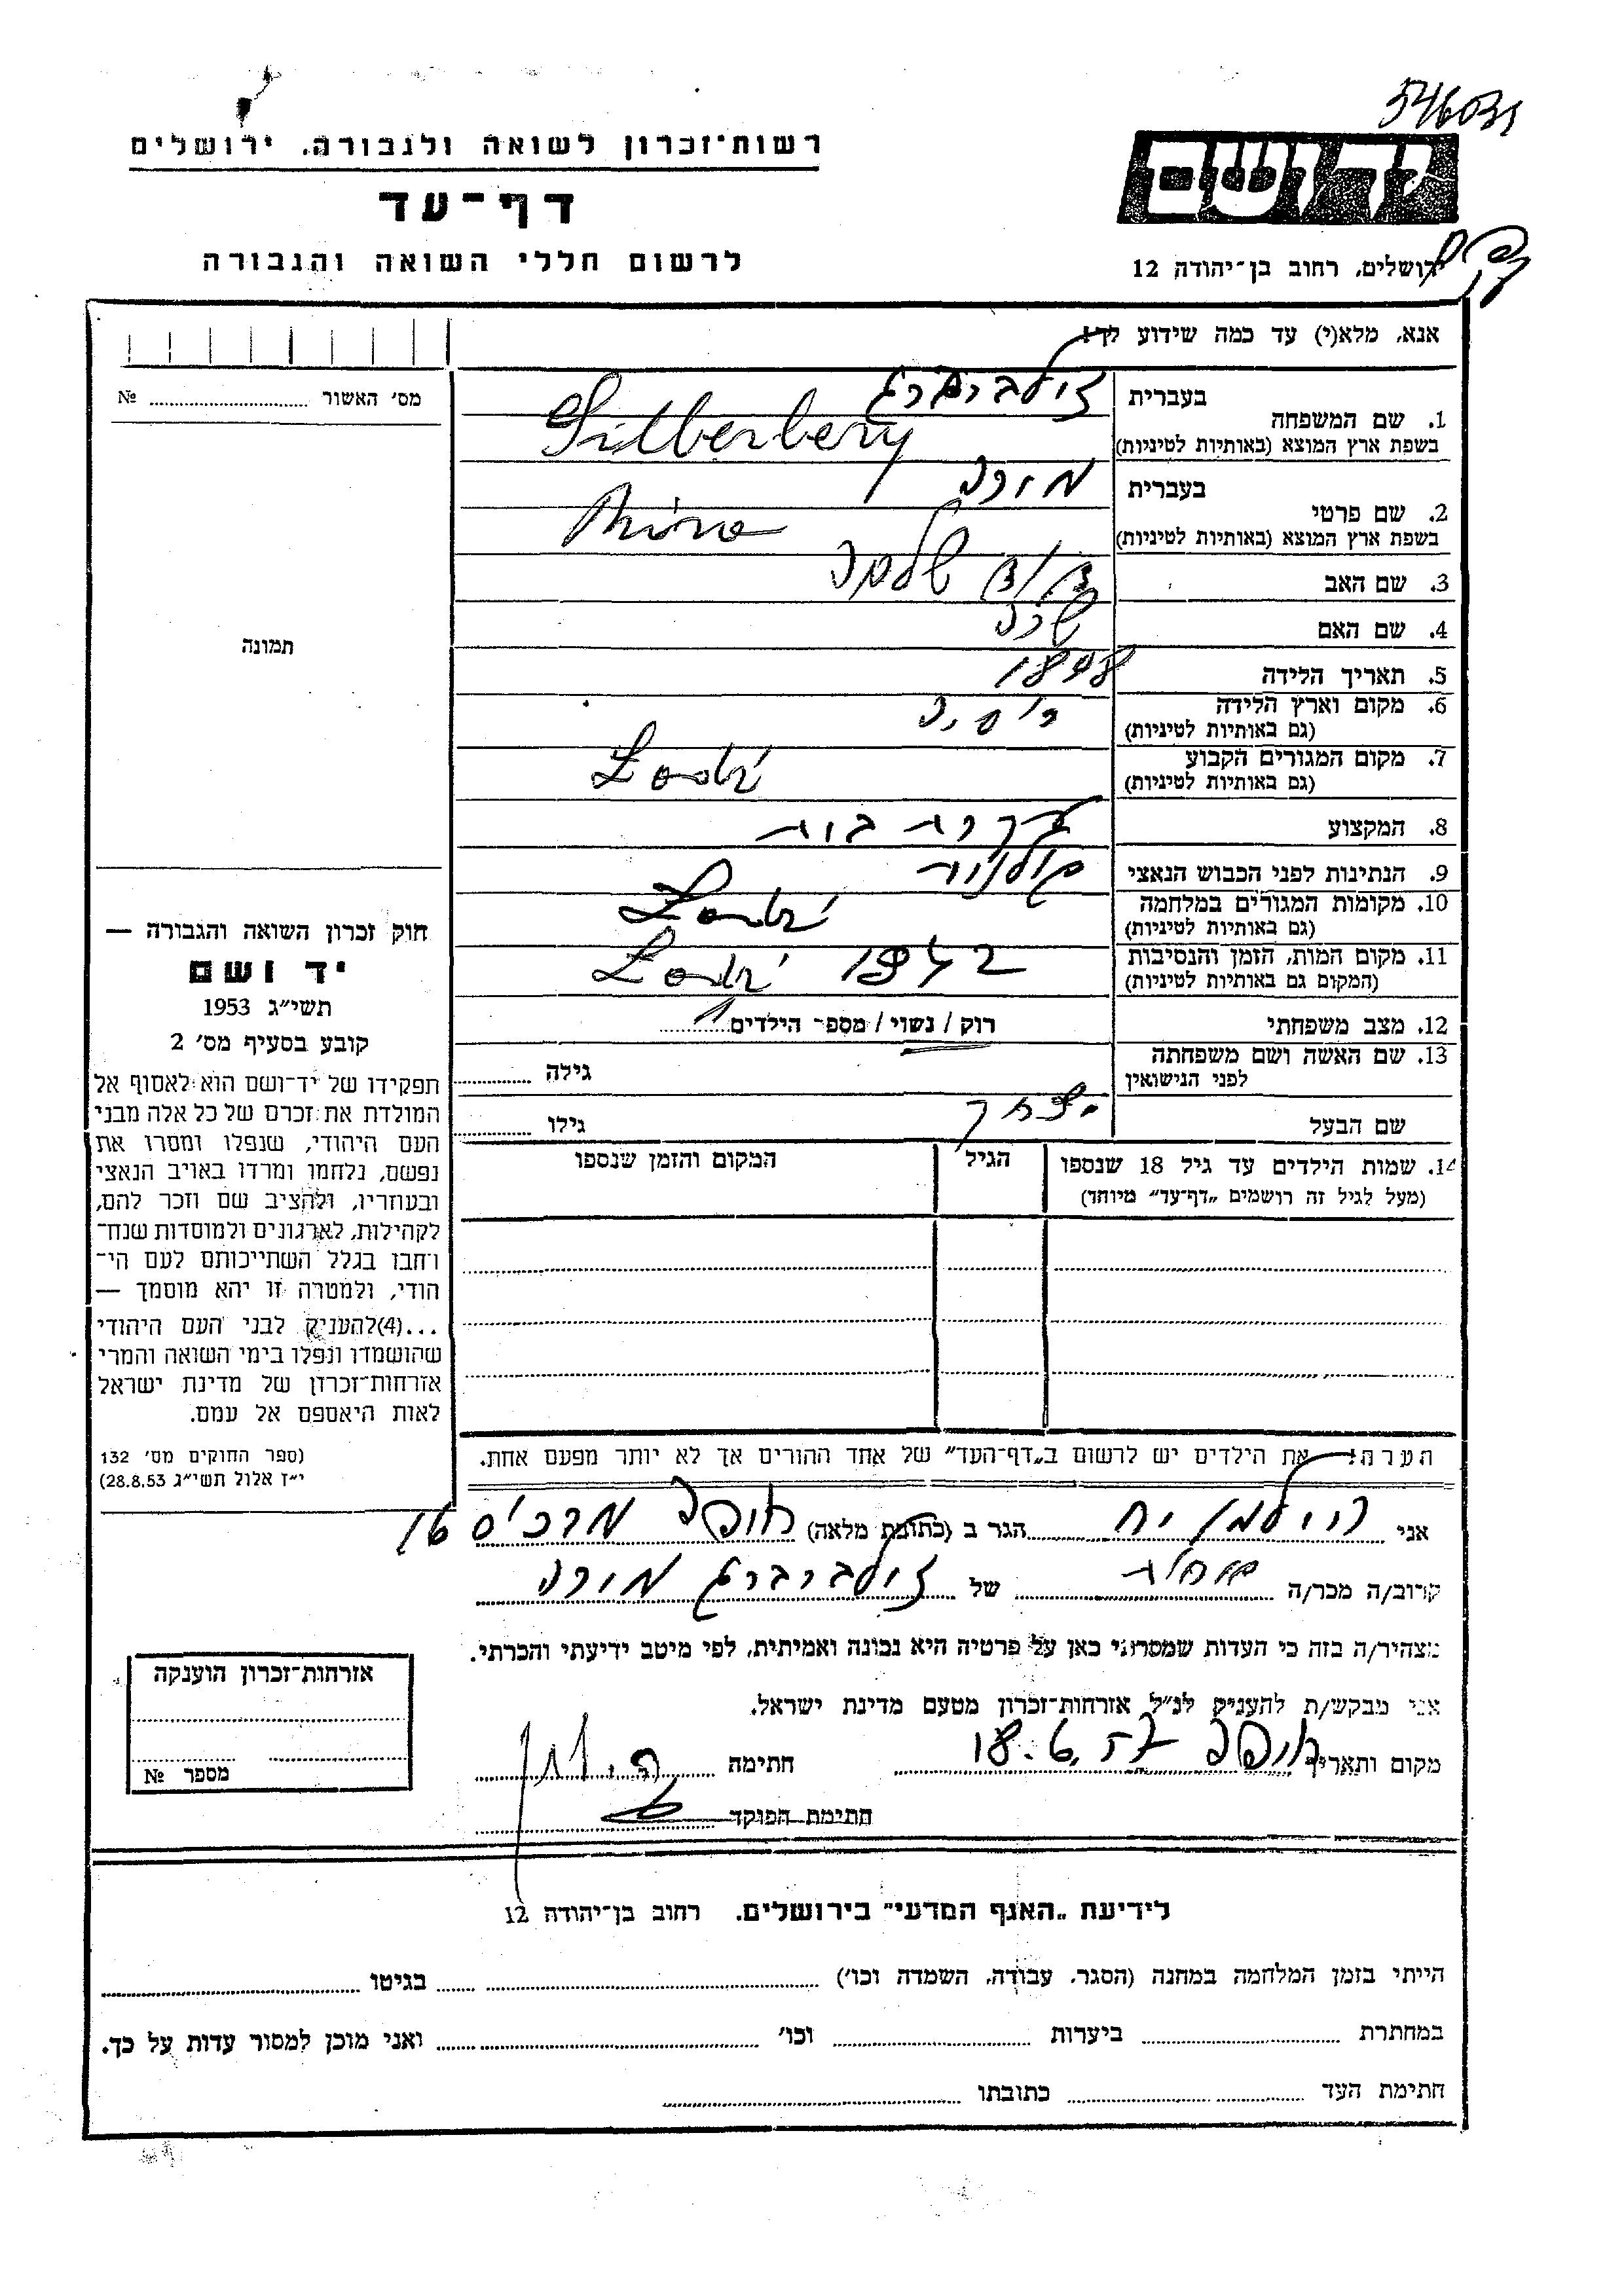 רשות־זכרון לשואה ולגבורה. ירושלים
דף־עד
לרשום חללי השואה והגבורה
יד ושם
ירושלים, רחוב בן־יהודה 12
אנא, מלא(י) עד כמה שידוע לך!
מס׳ האשור № 
1. שם המשפחה בעברית זילברברג
בשפת ארץ המוצא (באותיות לטיניות) Silberberg
2. שם פרטי בעברית מינה
בשפת ארץ המוצא (באותיות לטיניות) Mina
3. שם האב שלמה
4. שם האם שרה
5. תאריך הלידה 1898
6. מקום וארץ הלידה
(גם באותיות לטיניות)
7. מקום המגורים הקבוע
(גם באותיות לטיניות) Lodź
8. המקצוע עקרת בית
9. הנתינות לפני הכבוש הנאצי פולנית
10. מקומות המגורים במלחמה
(גם באותיות לטיניות) Lodź
11. מקום המות, הזמן והנסיבות
(המקום גם באותיות לטיניות) Lodź 1942
12. מצב משפחתי רוק / נשוי / מספר הילדים 1
13. שם האשה ושם משפחתה
לפני הנישואין גילה
שם הבעל יצחק גילו
14. שמות הילדים עד גיל 18 שנספו
(מעל לגיל זה רושמים „דף־עד״ מיוחד)
הגיל
המקום והזמן שנספו
הערה: את הילדים יש לרשום ב„דף־העד״ של אחד ההורים אך לא יותר מפעם אחת.
תמונה
חוק זכרון השואה והגבורה —
יד ושם
תשי״ג 1953
קובע בסעיף מס׳ 2
תפקידו של יד־ושם הוא לאסוף אל
המולדת את זכרם של כל אלה מבני
העם היהודי, שנפלו ומסרו את
נפשם, נלחמו ומרדו באויב הנאצי
ובעוזריו, ולהציב שם וזכר להם,
לקהילות, לארגונים ולמוסדות שנח־
רחבו בגלל השתייכותם לעם הי־
הודי, ולמטרה זו יהא מוסמך —
...(4)להעניק לבני העם היהודי
שהושמדו ונפלו בימי השואה והמרי
אזרחות־זכרון של מדינת ישראל
לאות היאספם אל עמם.
(ספר החוקים מס׳ 132
י״ז אלול תשי״ג 28.8.53)
אני היילמן הגר ב (כתובת מלאה) חיפה 16
קרוב/ה מכר/ה של זילברברג מינה
מצהיר/ה בזה כי העדות שמסרתי כאן על פרטיה היא נכונה ואמיתית, לפי מיטב ידיעתי והכרתי.
אני מבקש/ת להעניק לנ״ל אזרחות־זכרון מטעם מדינת ישראל.
מקום ותאריך חיפה 18.6.57 חתימה
חתימת הפוקד
אזרחות־זכרון הוענקה
מספר №
לידיעת „האגף המדעי״ בירושלים. רחוב בן־יהודה 12
הייתי בזמן המלחמה במחנה (הסגר, עבודה, השמדה וכו׳) בגיטו
במחתרת ביערות וכו׳ ואני מוכן למסור עדות על כך.
חתימת העד כתובתו